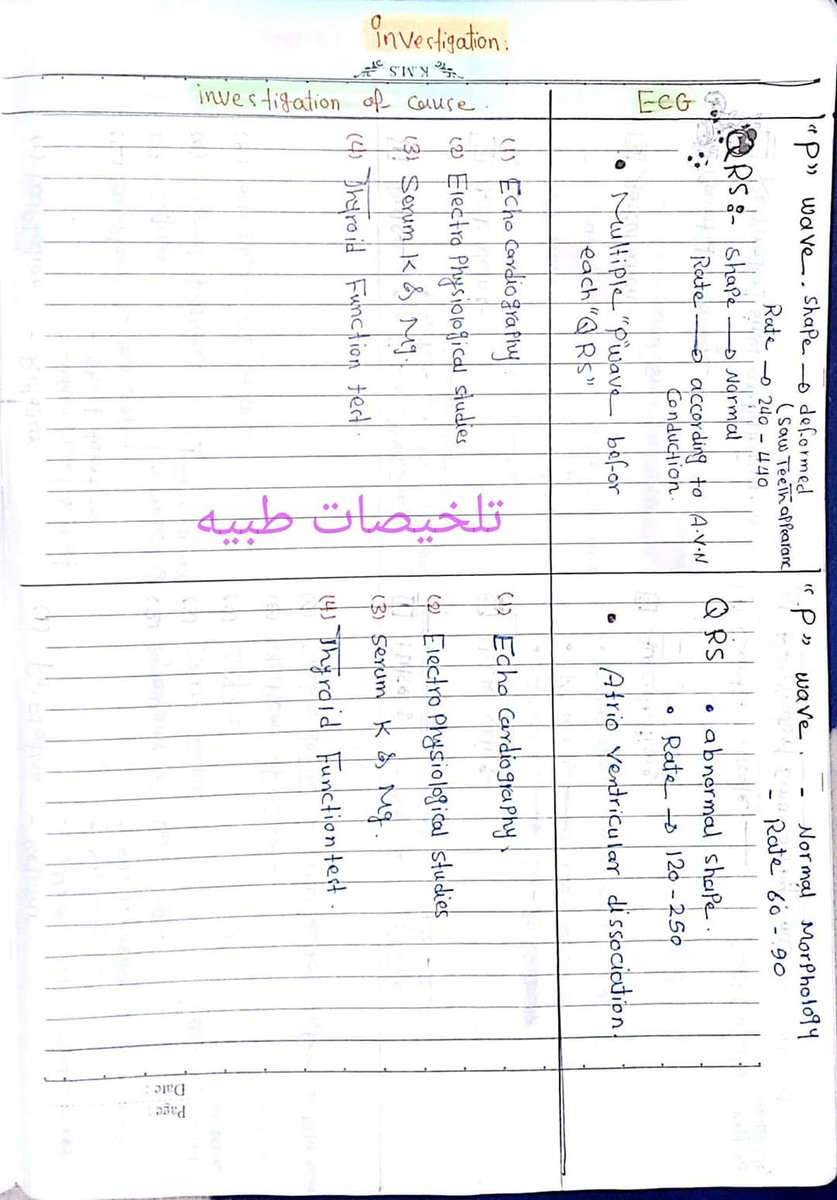 investigation.
K.M.S
ECG
investigation of cause.
"P" wave. shape → deformed
(Saw Teeth apparanc
Rate → 240 - 440
QRS:- shape → Normal
Rate → according to A.V.N
Conduction.
• Multiple "P" wave befor
each "QRS"
(1) Echo Cardiography
(2) Electro Physiological studies
(3) Serum K & Mg.
(4) Thyroid Function test.
تلخيصات طبيه
"P" wave. - Normal Morphology
- Rate 60 - 90
QRS • abnormal shape.
• Rate → 120 - 250
• Atrio ventricular dissociation.
(1) Echo Cardiography,
(2) Electro Physiological studies
(3) Serum K & Mg.
(4) Thyroid Function test.
Page:
Date: